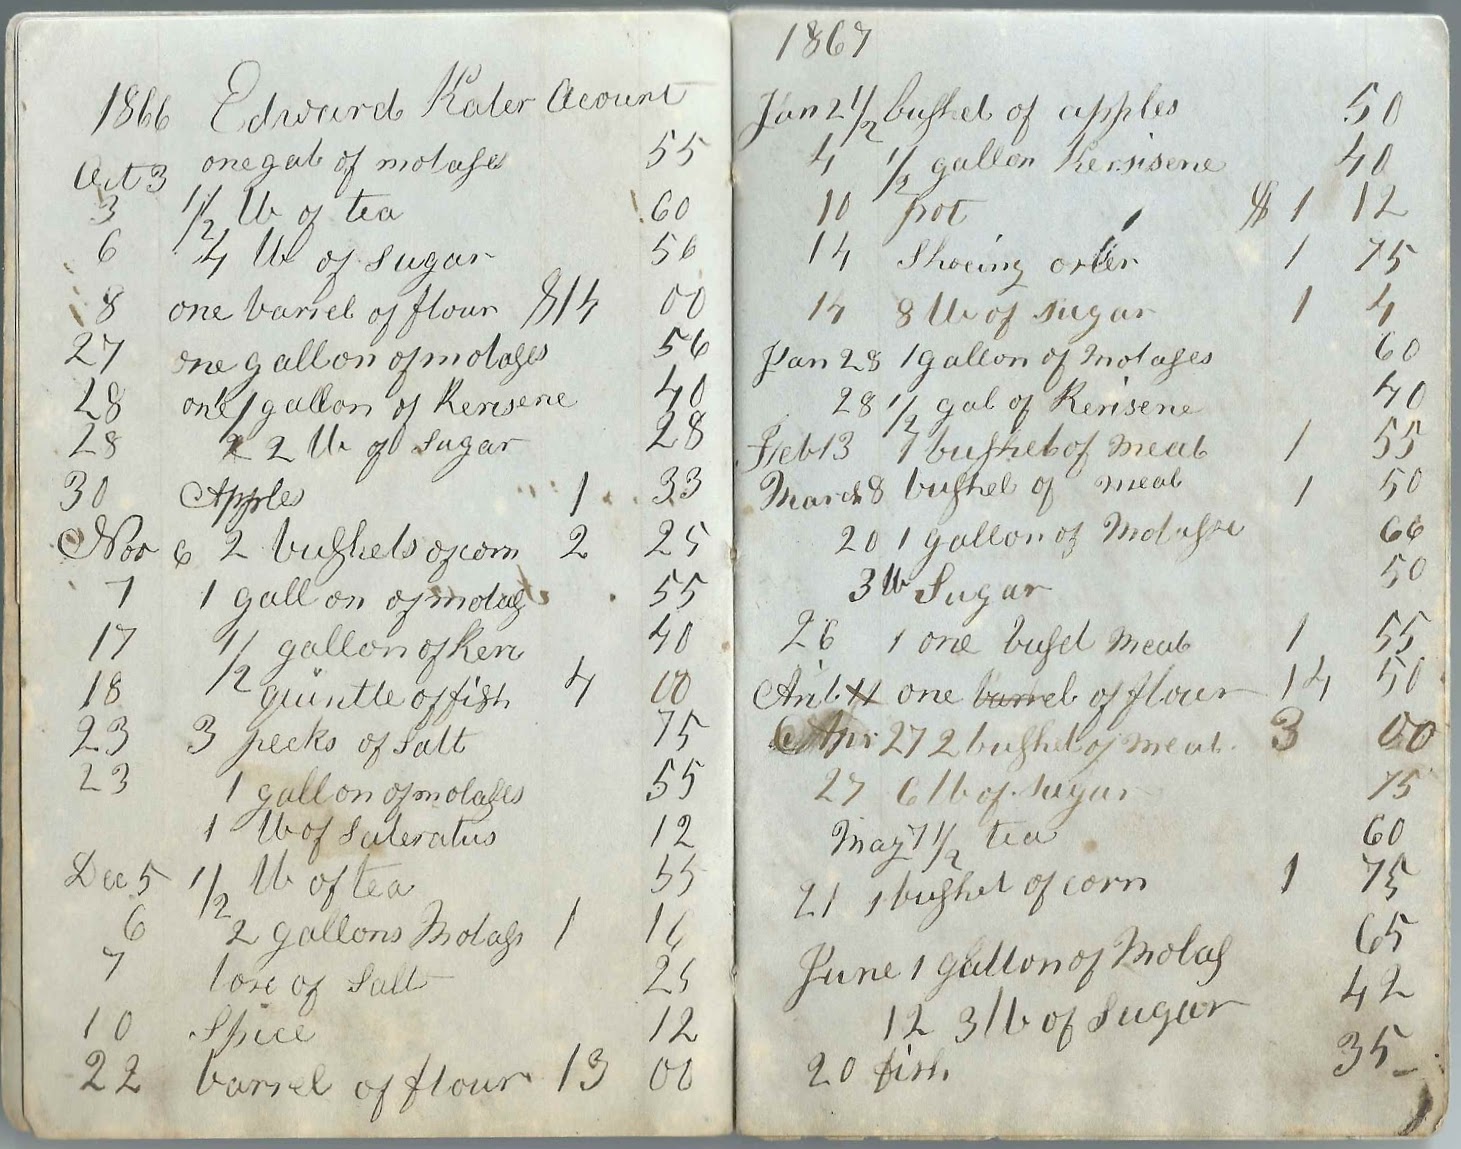 1866 Edward Kater Acount
Oct 3 one gal of molases 55
3 1/2 lb of tea .60
6 4 lb of sugar 56
8 one barrel of flour $14 00
27 one gallon of molases 56
28 one 1 gallon of Kerisene 40
28 2 2 lb of sugar 28
30 Apples 1 33
Nov 6 2 bushels of corn 2 25
7 1 gallon of molas 55
17 1/2 gallon of Keri 40
18 quintle of fish 4 00
23 3 pecks of salt 75
23 1 gallon of molases 55
1 lb of Saleratus 12
Dec 5 1/2 lb of tea 55
6 2 gallons Molas 1 16
7 of Salt 25
10 Spice 12
22 barrel of flour 13 00
1867
Jan 2 1/2 bushel of apples 50
4 1/2 gallon Kersisene 40
10 pot $ 1 12
14 Shoeing 1 75
14 8 lb of sugar 1 4
Jan 28 1 gallon of Molases 60
28 1/2 gal of Kerisene 40
Feb 13 1 bushel of meal 1 55
March 8 bushel of meal 1 50
20 1 gallon of Molases 66
3 lb Sugar 50
26 1 one bushel meal 1 55
one barrel of flour 14 50
Apr 27 2 bushel of meal 3 00
27 6 lb of sugar 75
May 7 1/2 tea 60
21 1 bushel of corn 1 75
June 1 gallon of Molas 65
12 3 lb of Sugar 42
20 fish 35